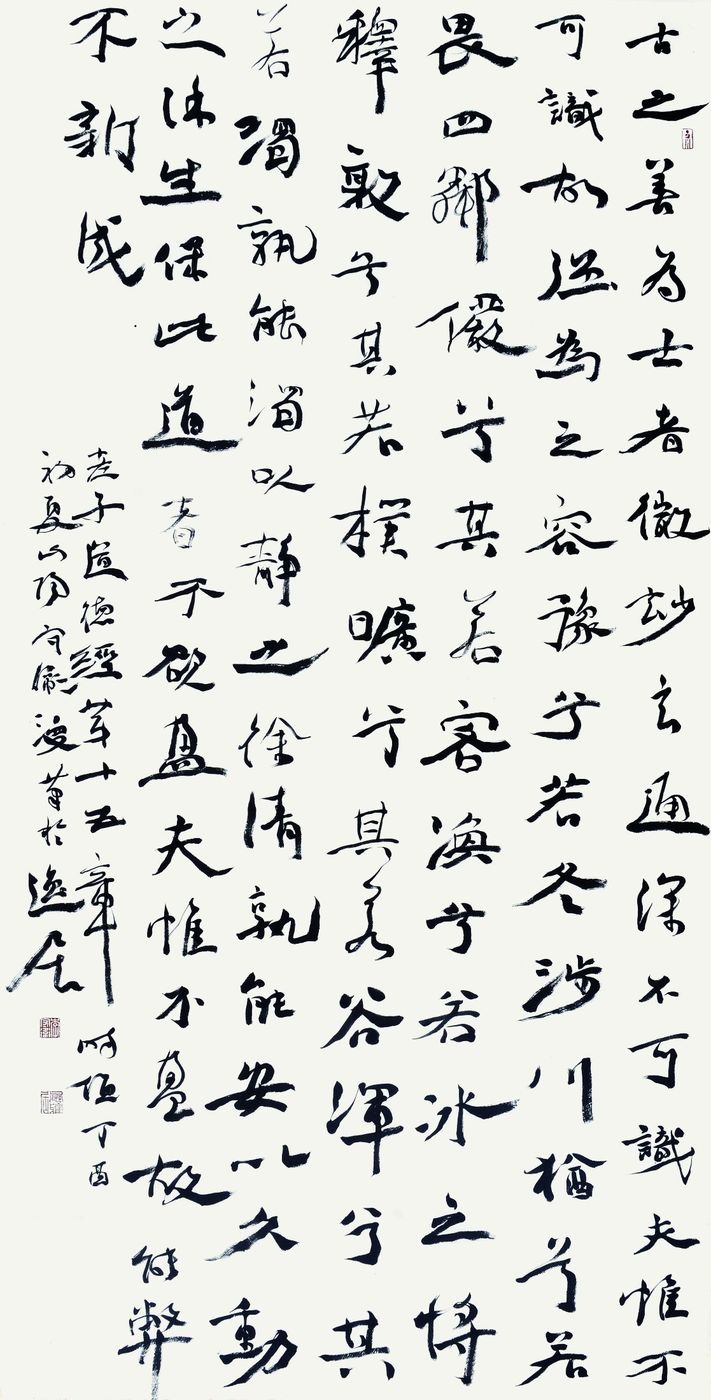 古之善為士者微妙玄通深不可識夫惟不
可識故強為之容豫兮若冬涉川猶兮若
畏四鄰儼兮其若客渙兮若冰之將
釋敦兮其若樸曠兮其若谷渾兮其
若濁孰能濁以靜之徐清孰能安以久動
之徐生保此道者不欲盈夫惟不盈故能弊
不新成
老子道德經第十五章時值丁酉
初夏山陽守漫筆於逸居